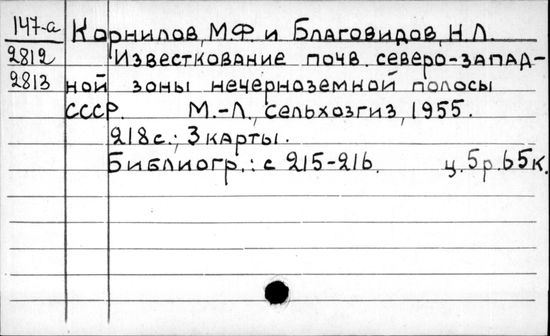 147-а Корнилов, М.Ф. и Благовидов, Н.Л.
2812 Известкование почв северо-запад-
2813 ной зоны нечерноземной полосы
СССР. М.-Л., Сельхозгиз, 1955.
218с.; 3 карты.
Библиогр.: с 215-216. ц. 5р.65к.